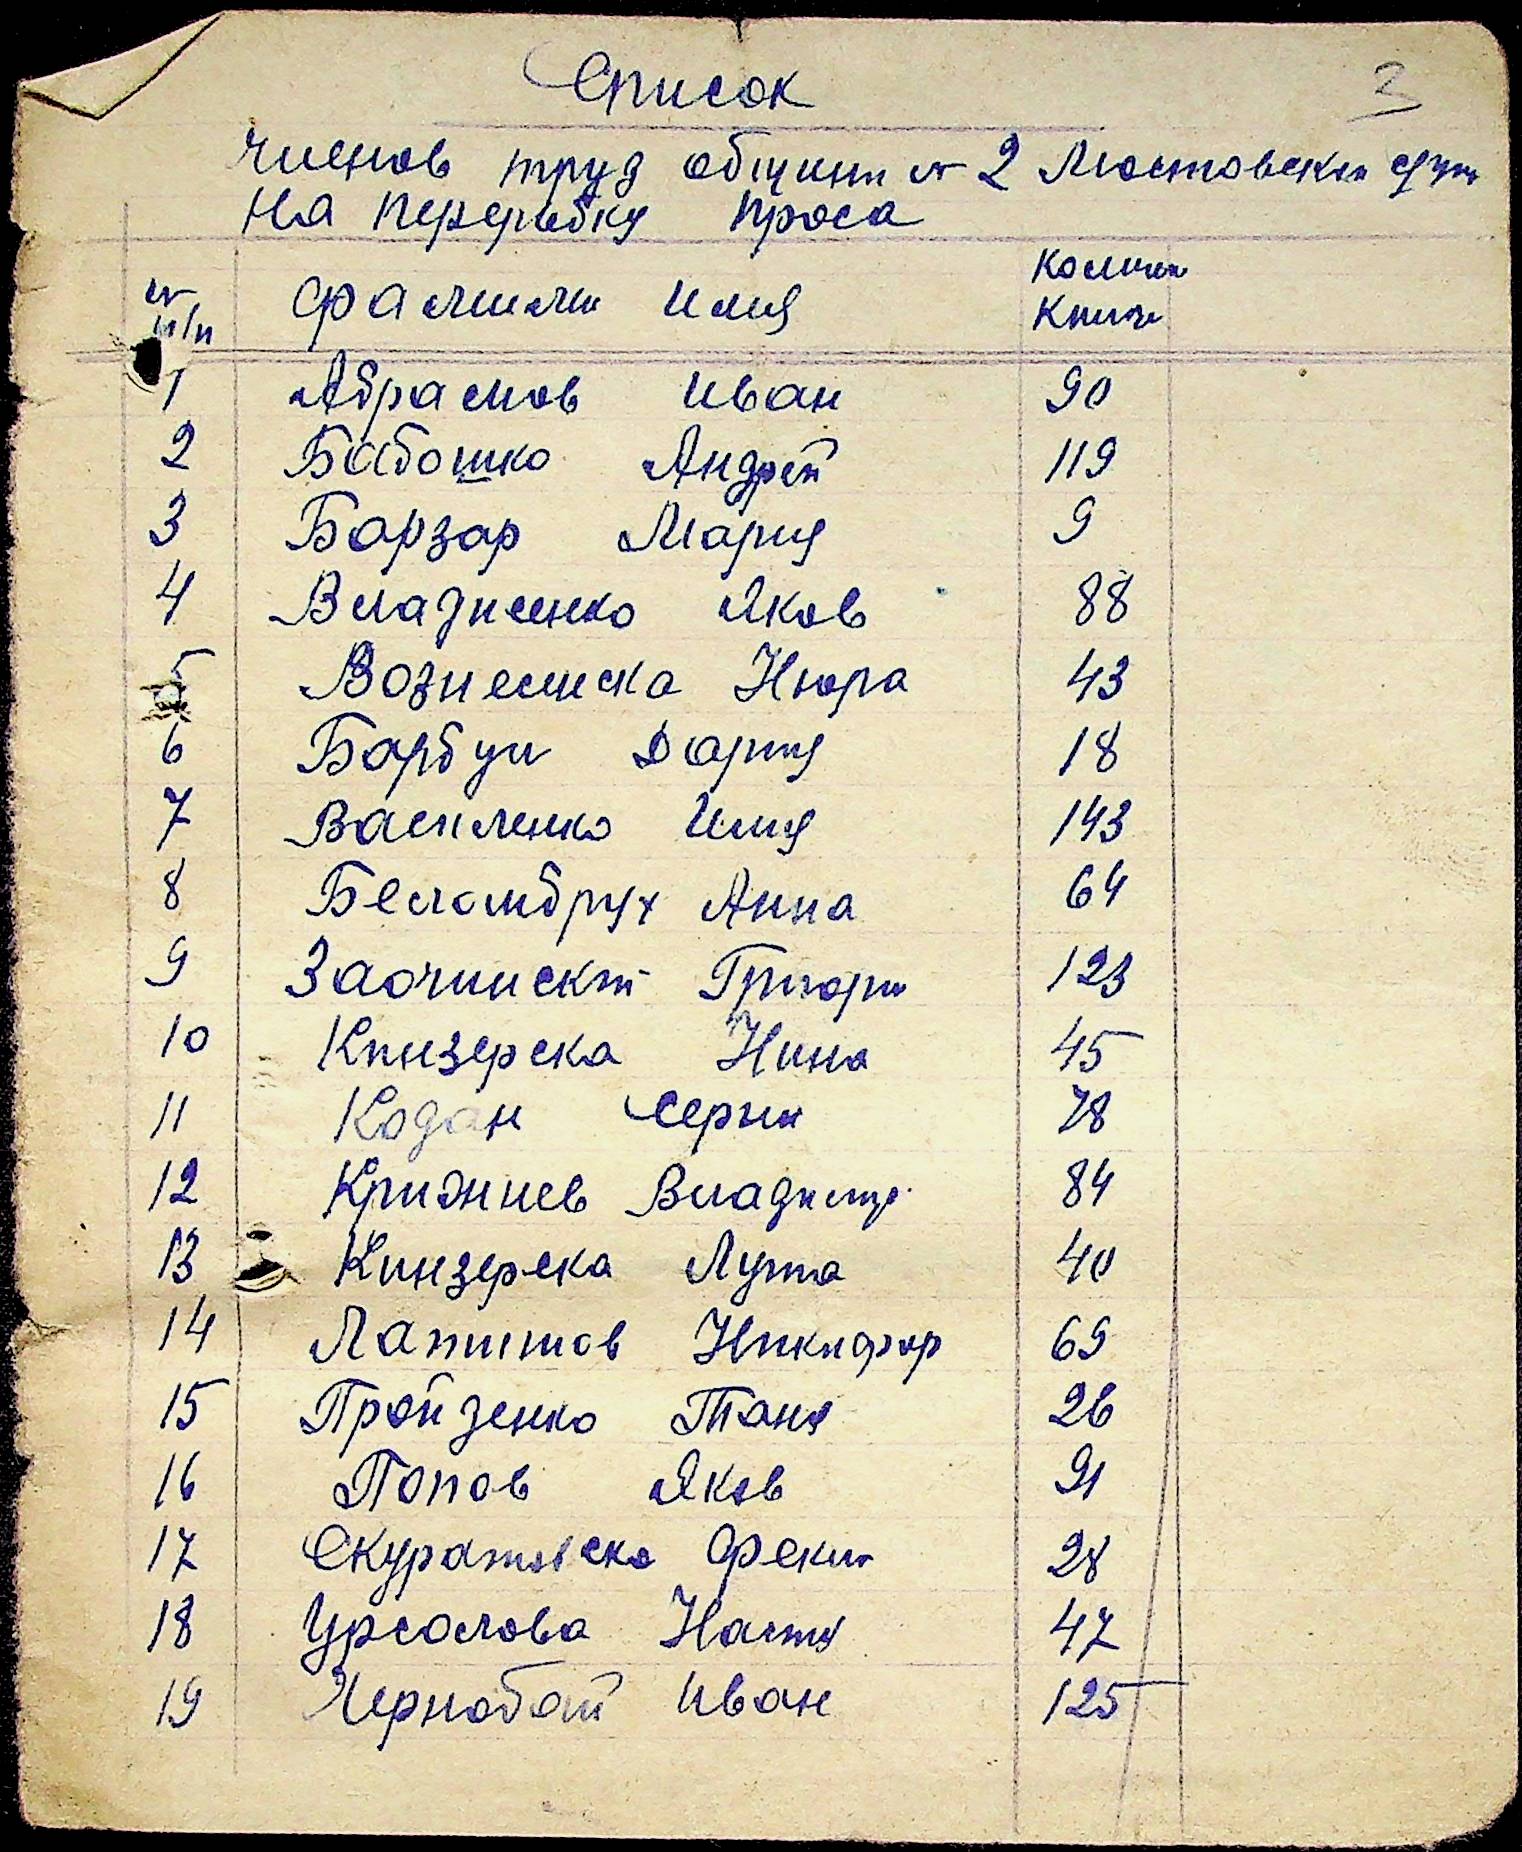 Список
3
членов труд общини № 2 Мостовской
На переривку проса
№ п/п Фамили Имя Колич Книги
1 Абрамов Иван 90
2 Бабошко Андрей 119
3 Барзар Мария 9
4 Владиенко Яков 88
5 Вознесиска Нюра 43
6 Барбуи Дария 18
7 Василенко Илия 143
8 Беломбрух Анна 64
9 Заочинский Григори 123
10 Кинзерска Нина 45
11 Кодан Серги 78
12 Крижнев Владимир 84
13 Кинзерска Луша 40
14 Лапшинов Никифор 69
15 Пройзенко Таня 26
16 Попов Яков 91
17 Скуратовска Фекли 28
18 Урсолова Настя 47
19 Чернобай Иван 125